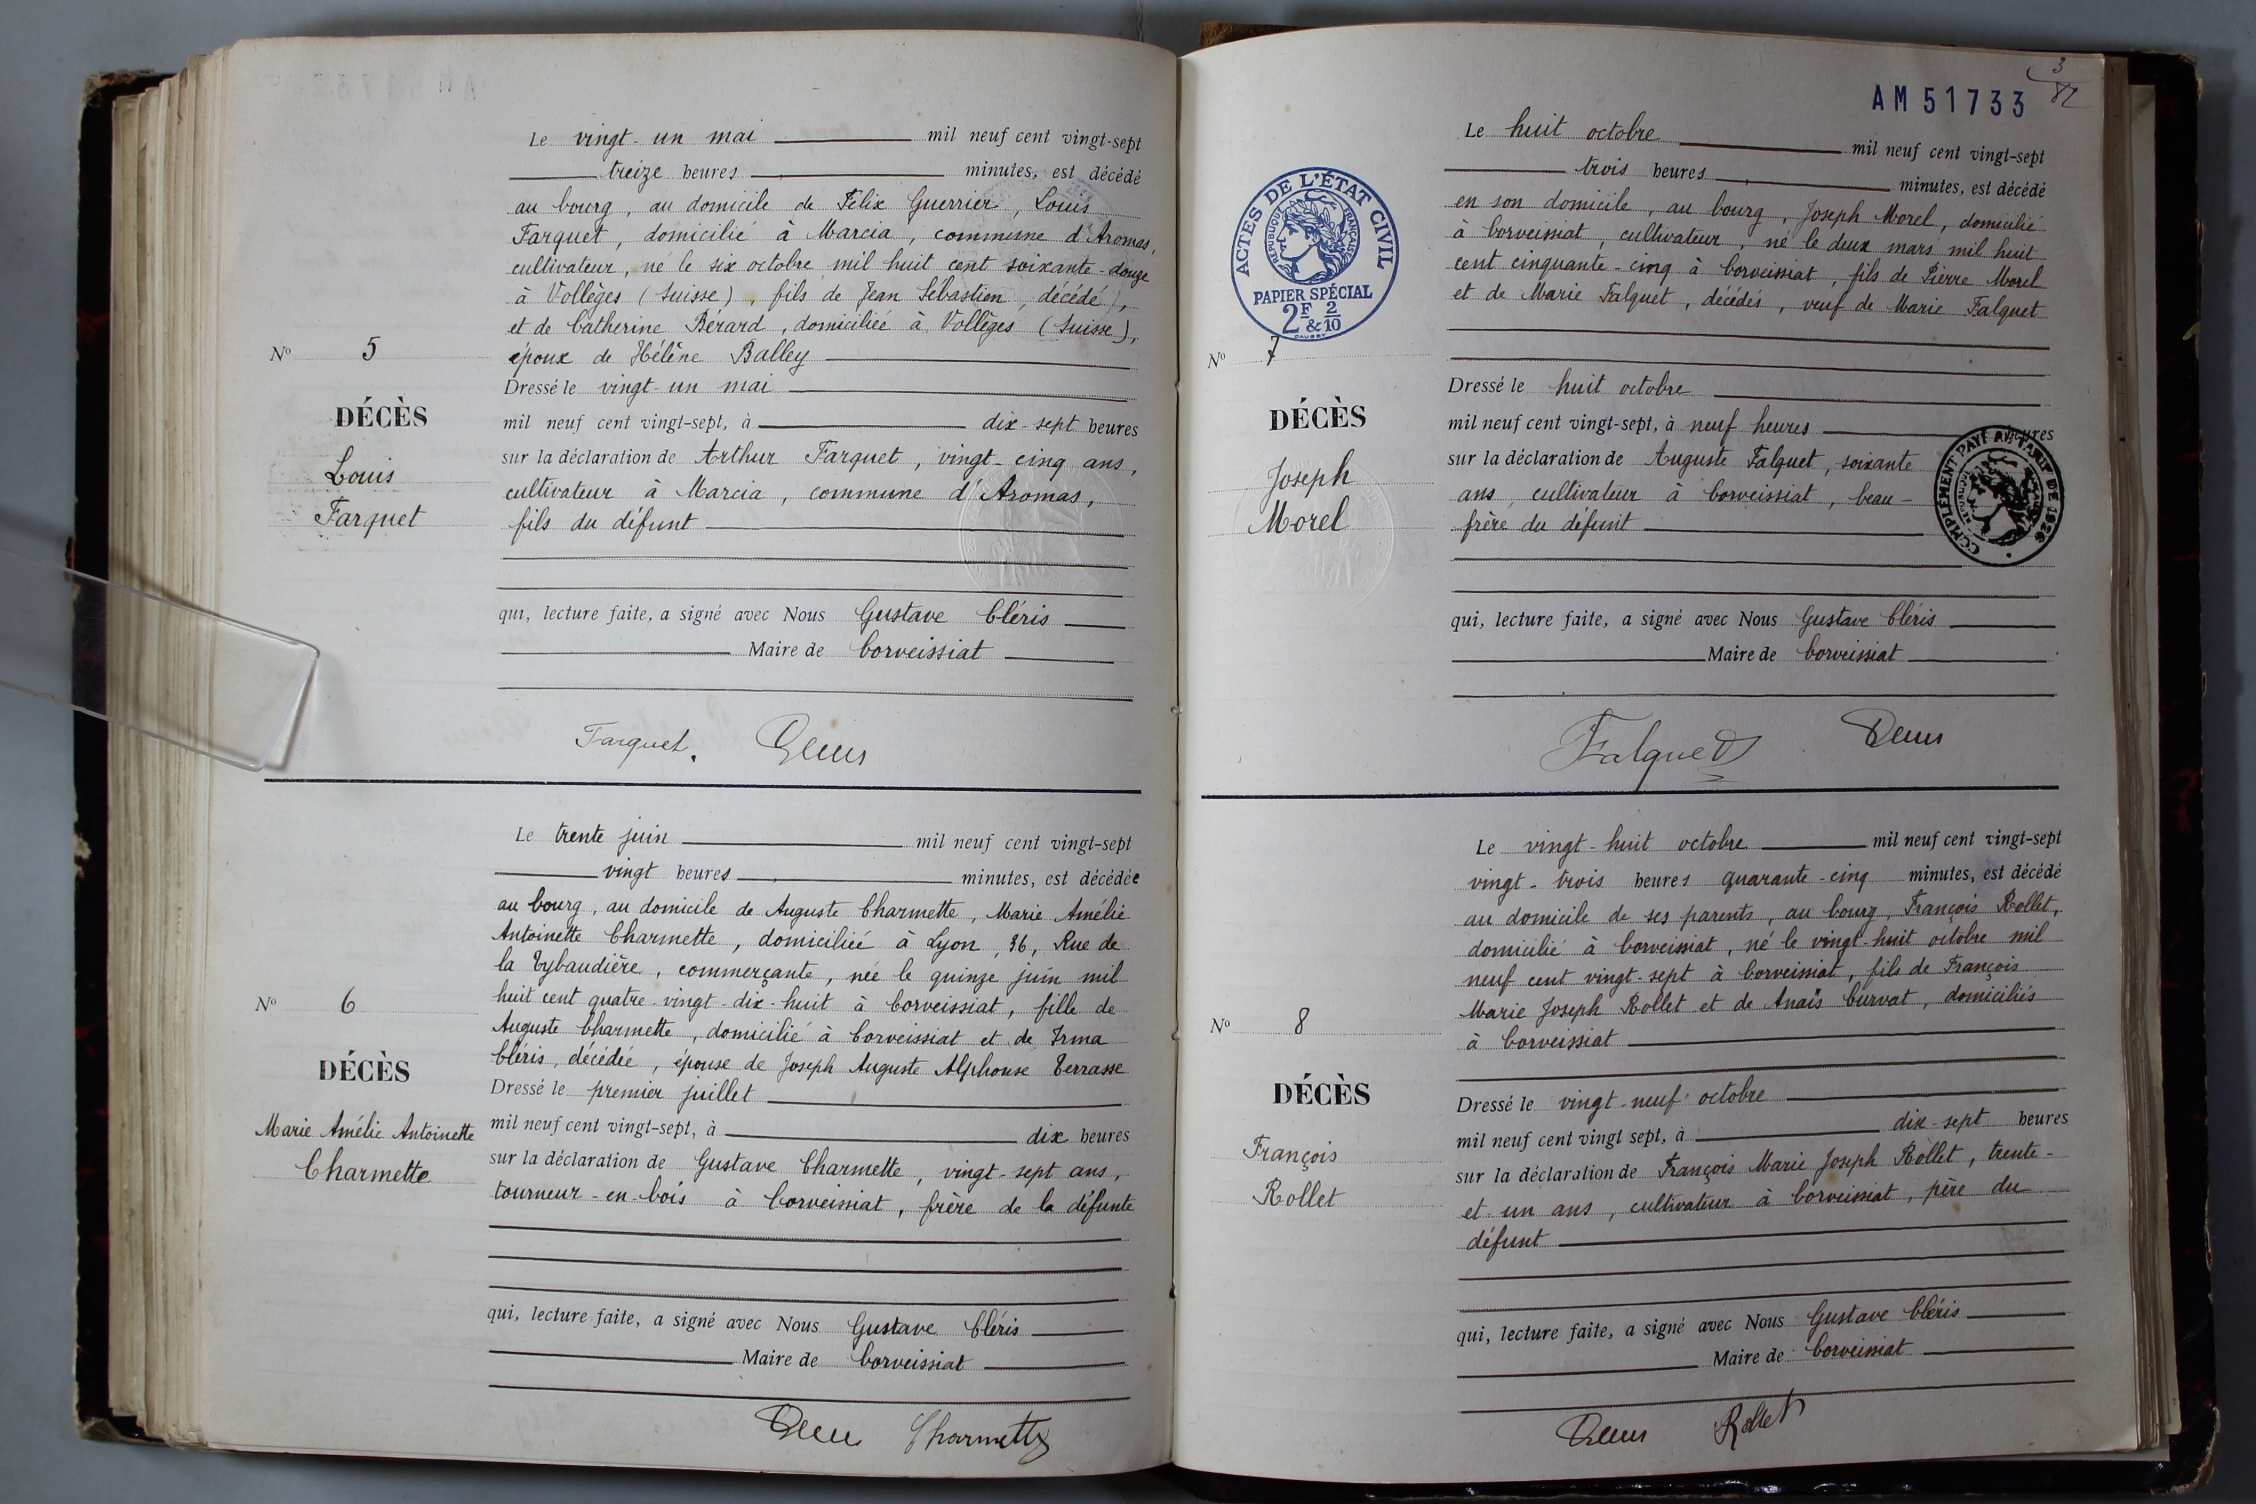 Le vingt-un mai mil neuf cent vingt-sept
treize heures minutes, est décédé
au bourg, au domicile de Félix Guerrier, Louis
Farquet, domicilié à Marcia, commune d'Aromas,
cultivateur, né le six octobre mil huit cent soixante-douze
à Vollèges (Suisse), fils de Jean Sébastien, décédé,
et de Catherine Bérard, domiciliée à Vollèges (Suisse),
époux de Hélène Balley
Nº 5
DÉCÈS
Louis
Farquet
Dressé le vingt-un mai
mil neuf cent vingt-sept, à dix-sept heures
sur la déclaration de Arthur Farquet, vingt-cinq ans,
cultivateur à Marcia, commune d'Aromas,
fils du défunt
qui, lecture faite, a signé avec Nous Gustave Cléris
Maire de Corveissiat
Farquet.
Le trente juin mil neuf cent vingt-sept
vingt heures minutes, est décédée
au bourg, au domicile de Auguste Charmette, Marie Amélie
Antoinette Charmette, domiciliée à Lyon, 36, Rue de
la Tybaudière, commerçante, née le quinze juin mil
huit cent quatre-vingt-dix-huit à Corveissiat, fille de
Auguste Charmette, domicilié à Corveissiat et de Irma
Cléris, décédée, épouse de Joseph Auguste Alphonse Terrasse
Nº 6
DÉCÈS
Marie Amélie Antoinette
Charmette
Dressé le premier juillet
mil neuf cent vingt-sept, à dix heures
sur la déclaration de Gustave Charmette, vingt-sept ans,
tourneur-en-bois à Corveissiat, frère de la défunte
qui, lecture faite, a signé avec Nous Gustave Cléris
Maire de Corveissiat
Charmette
AM 51733
3
82
ACTES DE L'ÉTAT CIVIL
RÉPUBLIQUE FRANÇAISE
PAPIER SPÉCIAL
2F & 2/10
Le huit octobre mil neuf cent vingt-sept
trois heures minutes, est décédé
en son domicile, au bourg, Joseph Morel, domicilié
à Corveissiat, cultivateur, né le deux mars mil huit
cent cinquante-cinq à Corveissiat, fils de Pierre Morel
et de Marie Falquet, décédés, veuf de Marie Falquet
Nº 7
DÉCÈS
Joseph
Morel
Dressé le huit octobre
mil neuf cent vingt-sept, à neuf heures heures
sur la déclaration de Auguste Falquet, soixante
ans, cultivateur à Corveissiat, beau-
frère du défunt
COMPLÉMENT PAYÉ AU TARIF DE 1926
qui, lecture faite, a signé avec Nous Gustave Cléris
Maire de Corveissiat
Falquet
Le vingt-huit octobre mil neuf cent vingt-sept
vingt-trois heures quarante-cinq minutes, est décédé
au domicile de ses parents, au bourg, François Rollet,
domicilié à Corveissiat, né le vingt-huit octobre mil
neuf cent vingt-sept à Corveissiat, fils de François
Marie Joseph Rollet et de Anaïs Curvat, domiciliés
à Corveissiat
Nº 8
DÉCÈS
François
Rollet
Dressé le vingt-neuf octobre
mil neuf cent vingt sept, à dix-sept heures
sur la déclaration de François Marie Joseph Rollet, trente-
et-un ans, cultivateur à Corveissiat, père du
défunt
qui, lecture faite, a signé avec Nous Gustave Cléris
Maire de Corveissiat
Rollet